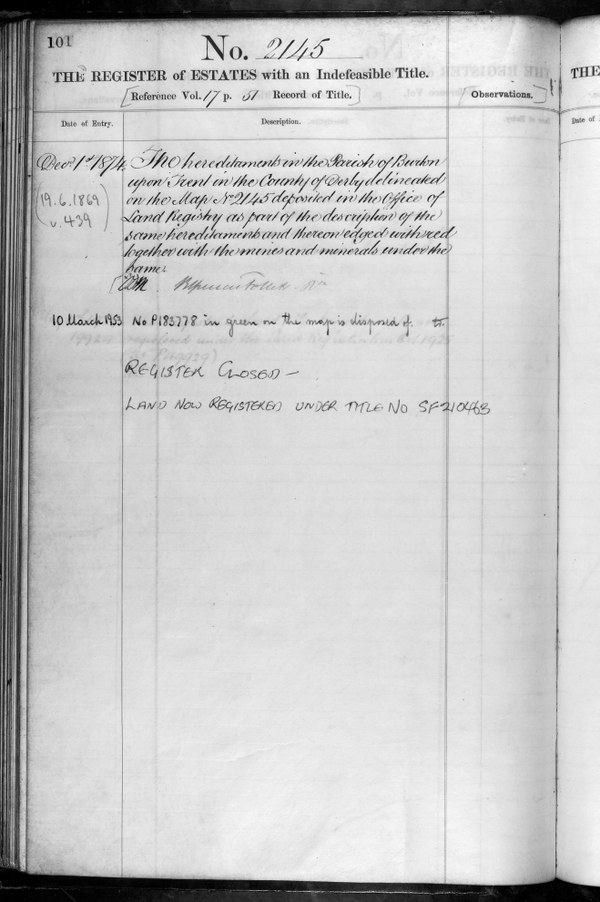 101
No. 2145
THE REGISTER of ESTATES with an Indefeasible Title.
[Reference Vol. 17 p. 51 Record of Title.]
[Observations.]
Date of Entry.
Description.
Decr 1st 1874
The hereditaments in the Parish of Burton
upon Trent in the County of Derby delineated
(19.6.1869
on the Map No 2145 deposited in the Office of
v. 439)
Land Registry as part of the description of the
same hereditaments and thereon edged with red
together with the mines and minerals under the
same.
10 March 1953
No P183778 in green on the map is disposed of.
REGISTER CLOSED -
LAND NOW REGISTERED UNDER TITLE NO SF210463
THE
Date of